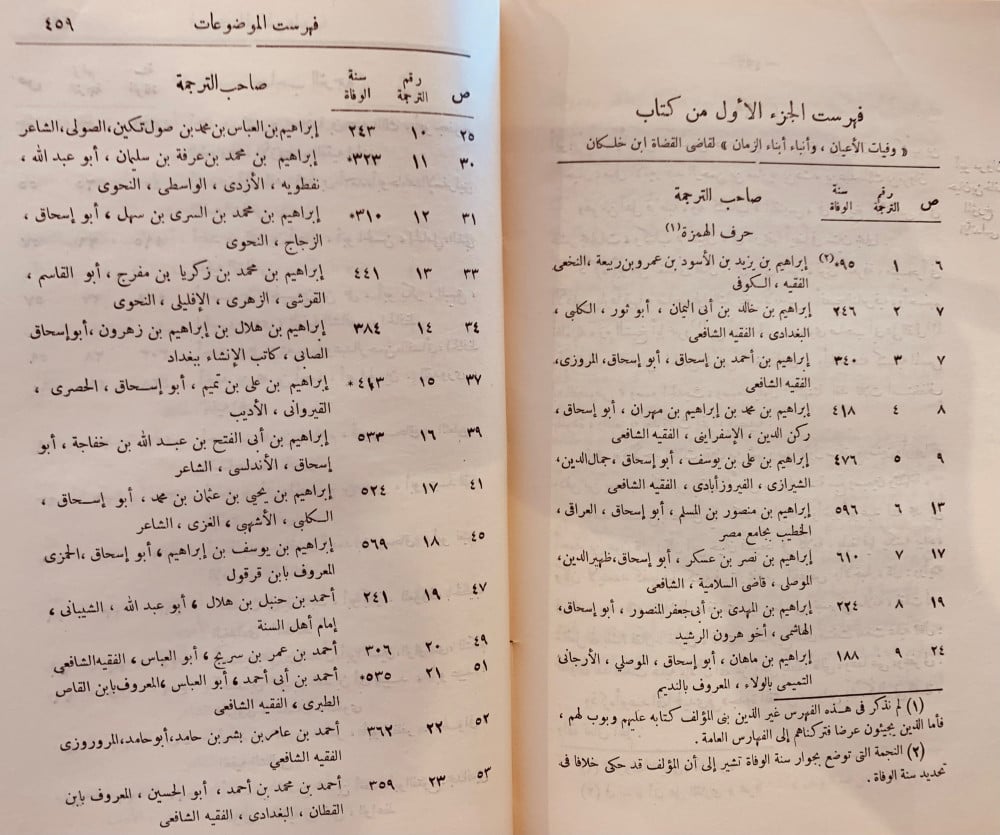 فهرست الجزء الأول من كتاب
« وفيات الأعيان ، وأنباء أبناء الزمان » لقاضى القضاة ابن خلكان
ص رقم الترجمة سنة الوفاة صاحب الترجمة
حرف الهمزة (١)
٦ ١ *٩٥ (٢) إبراهيم بن يزيد بن الأسود بن عمرو بن ربيعة ، النخعى
الفقيه ، الكوفى
٧ ٢ ٢٤٦ إبراهيم بن خالد بن أبى اليمان ، أبو ثور ، الكلبى ،
البغدادى ، الفقيه الشافعى
٧ ٣ ٣٤٠ إبراهيم بن أحمد بن إسحاق ، أبو إسحاق ، المروزى ،
الفقيه الشافعى
٨ ٤ ٤١٨ إبراهيم بن محمد بن إبراهيم بن مهران ، أبو إسحاق ،
ركن الدين ، الإسفراينى ، الفقيه الشافعى
٩ ٥ ٤٧٦ إبراهيم بن على بن يوسف ، أبو إسحاق ، جمال الدين ،
الشيرازى ، الفيروزأبادى ، الفقيه الشافعى
١٣ ٦ ٥٩٦ إبراهيم بن منصور بن المسلم ، أبو إسحاق ، العراقى ،
الخطيب بجامع مصر
١٧ ٧ ٦١٠ إبراهيم بن نصر بن عسكر ، أبو إسحاق ، ظهير الدين ،
الموصلى ، قاضى السلامية ، الشافعى
١٩ ٨ ٢٢٤ إبراهيم بن المهدى بن أبى جعفر المنصور ، أبو إسحاق ،
الهاشمى ، أخو هرون الرشيد
٢٤ ٩ ١٨٨ إبراهيم بن ماهان ، أبو إسحاق ، الموصلي ، الأرجانى
التميمى بالولاء ، المعروف بالنديم
(١) لم نذكر فى هذه الفهرس غير الذين بنى المؤلف كتابه عليهم وبوب لهم ،
فأما الذين يجيئون عرضا فتركناهم إلى الفهارس العامة .
(٢) النجمة التى توضع بجوار سنة الوفاة تشير إلى أن المؤلف قد حكى خلافا فى
تحديد سنة الوفاة .
فهرست الموضوعات ٤٥٩
ص رقم الترجمة سنة الوفاة صاحب الترجمة
٢٥ ١٠ ٢٤٣ إبراهيم بن العباس بن محمد بن صول تكين ، الصولى ، الشاعر
٣٠ ١١ ٣٢٣* إبراهيم بن محمد بن عرفة بن سليمان ، أبو عبد الله ،
نفطويه ، الأزدى ، الواسطى ، النحوى
٣١ ١٢ ٣١٠* إبراهيم بن محمد بن السرى بن سهل ، أبو إسحاق ،
الزجاج ، النحوى
٣٣ ١٣ ٤٤١ إبراهيم بن محمد بن زكريا بن مفرج ، أبو القاسم ،
القرشى ، الزهرى ، الإفليلى ، النحوى
٣٤ ١٤ ٣٨٤ إبراهيم بن هلال بن إبراهيم بن زهرون ، أبو إسحاق
الصابى ، كاتب الإنشاء ببغداد
٣٧ ١٥ ٤١٣* إبراهيم بن على بن تميم ، أبو إسحاق ، الحصرى ،
القيروانى ، الأديب
٣٩ ١٦ ٥٣٣ إبراهيم بن أبى الفتح بن عبد الله بن خفاجة ، أبو
إسحاق ، الأندلسى ، الشاعر
٤١ ١٧ ٥٢٤ إبراهيم بن يحيى بن عثمان بن محمد ، أبو إسحاق ،
الكلبى ، الأشهبى ، الغزى ، الشاعر
٤٥ ١٨ ٥٦٩ إبراهيم بن يوسف بن إبراهيم ، أبو إسحاق ، الحمزى
المعروف بابن قرقول
٤٧ ١٩ ٢٤١ أحمد بن حنبل بن هلال ، أبو عبد الله ، الشيبانى ،
إمام أهل السنة
٤٩ ٢٠ ٣٠٦ أحمد بن عمر بن سريج ، أبو العباس ، الفقيه الشافعى
٥١ ٢١ ٥٣٥* أحمد بن أبى أحمد ، أبو العباس ، المعروف بابن القاص
الطبرى ، الفقيه الشافعى
٥٢ ٢٢ ٣٦٢ أحمد بن عامر بن بشر بن حامد ، أبو حامد ، المروروزى
الفقيه الشافعي
٥٣ ٢٣ ٣٥٩ أحمد بن محمد بن أحمد ، أبو الحسين ، المعروف بابن
القطان ، البغدادى ، الفقيه الشافعى